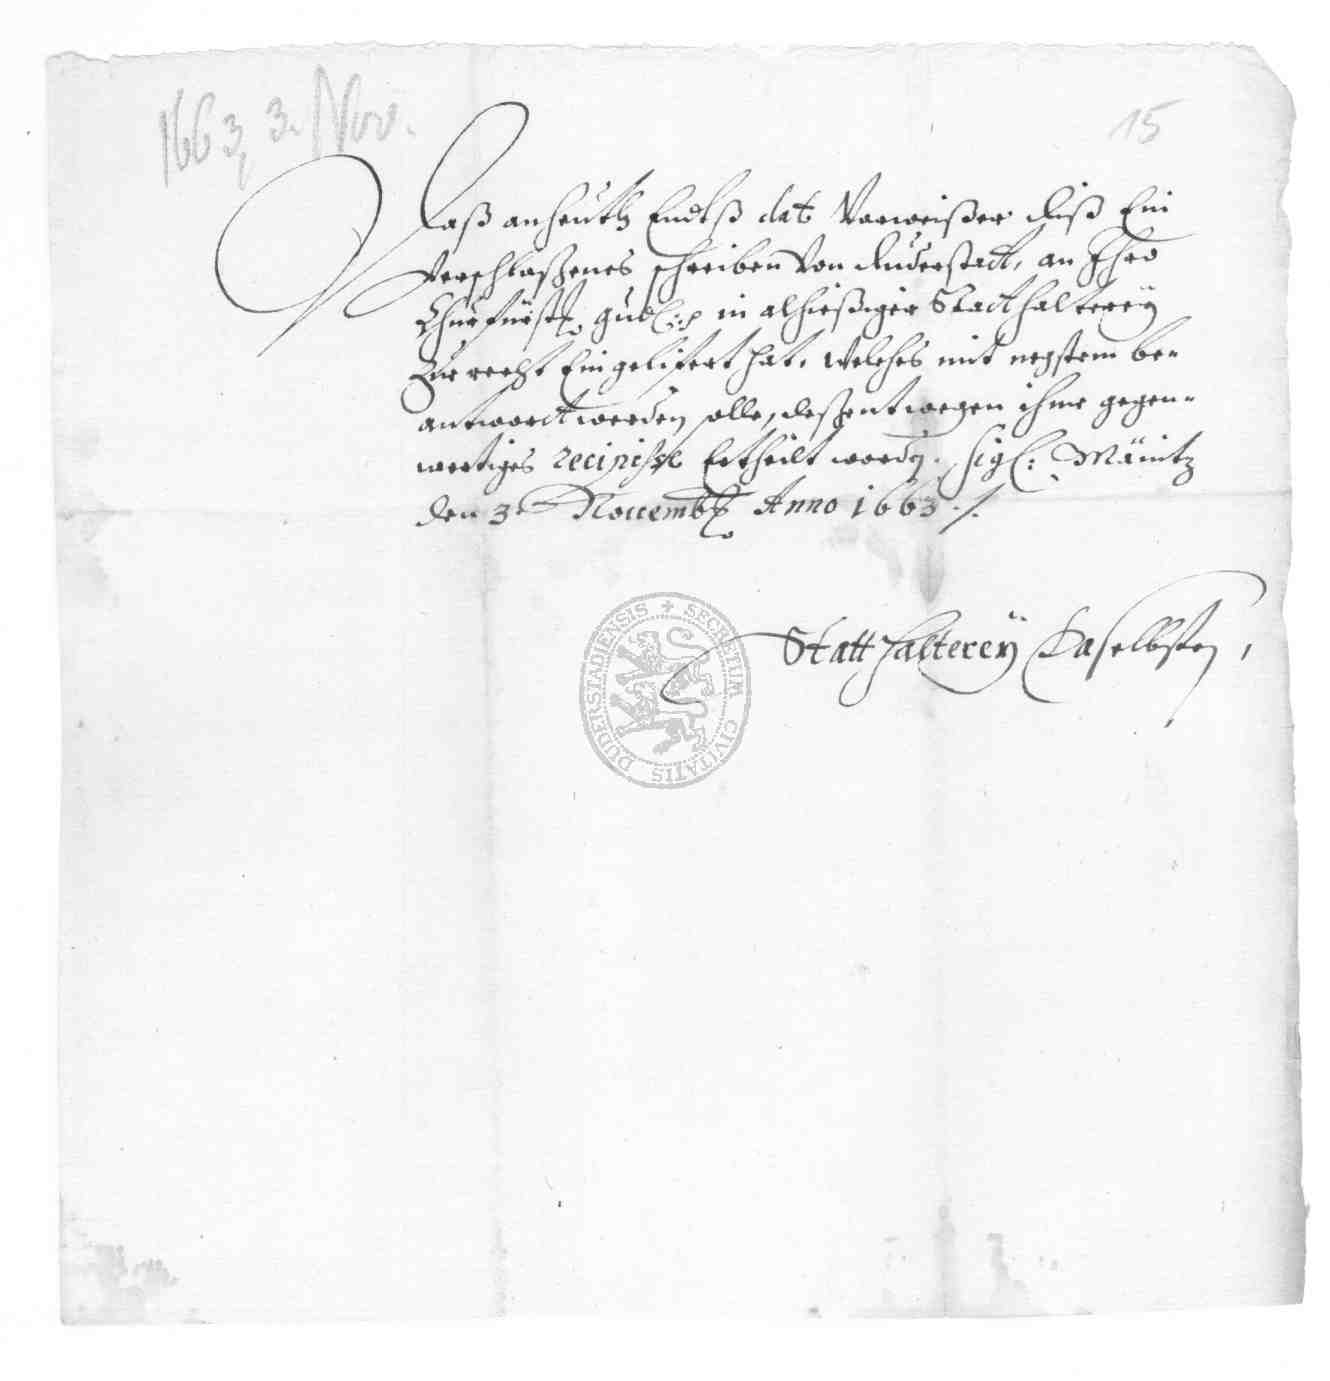 1663, 3. Nov.
15
Daß anheuth Endts dat Vorweißer diß Ein
verschloßenes schreiben von Duderstadt, an Ihro
Churfürstl. gnd. in alhießiger Statthalterey
Zue recht Eingelifert hat, welches mit negstem be-
antwordt werden solle, deßentwegen ihme gegen-
wertiges recipisse Ertheilt worden. Sigl: Mäintz
den 3t Novemb. Anno 1663 ./.
Statthalterey Daselbsten,
SECRETUM CIVITATIS DUDERSTADIENSIS